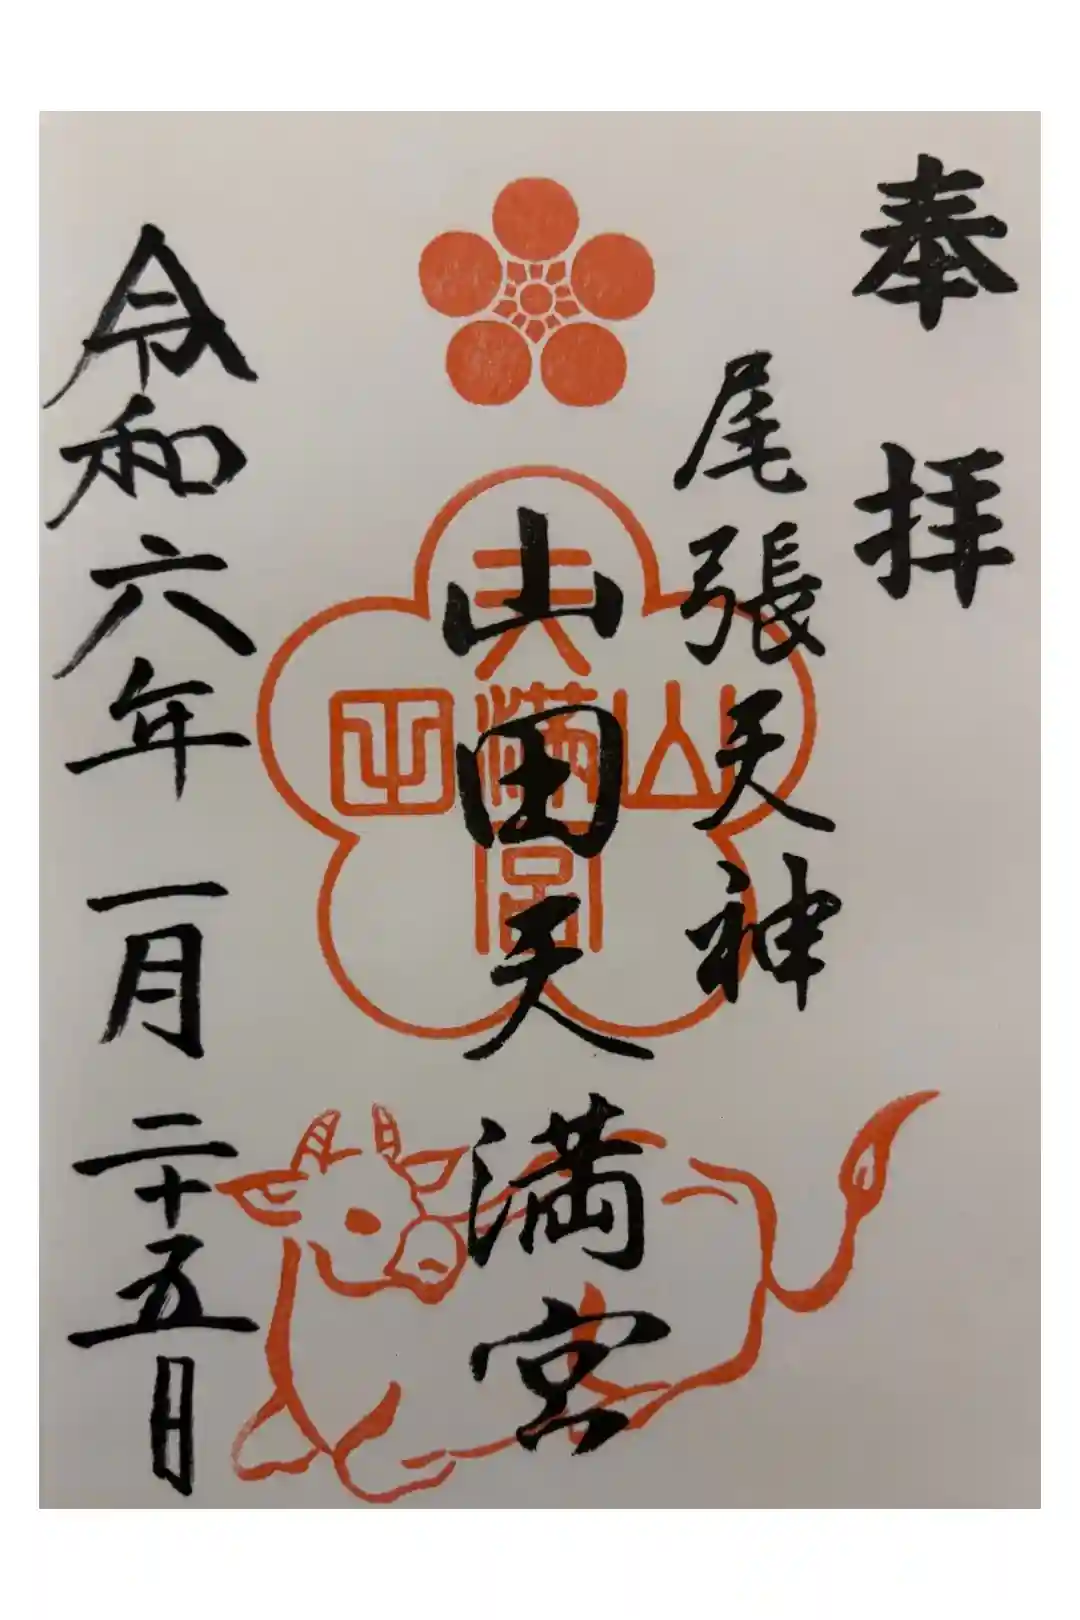 奉拝
尾張天神
山田天満宮
山田天満宮
令和六年一月二十五日